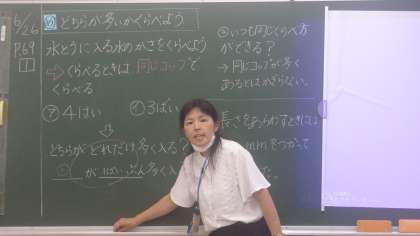 6/26
め どちらが多いかくらべよう
P.69
1
水とうに入る水のかさをくらべよう
⇨ くらべるときは 同じコップで
くらべる
㋐ 4はい ㋑ 3ばい
どちらが どれだけ 多く入る?
が 1ぱいぶん 多く入
◎いつも同じくらべ方
ができる?
→ 同じコップが多く
あるとはかぎらない。
長さをあらわすときには
mmをつかって
た。